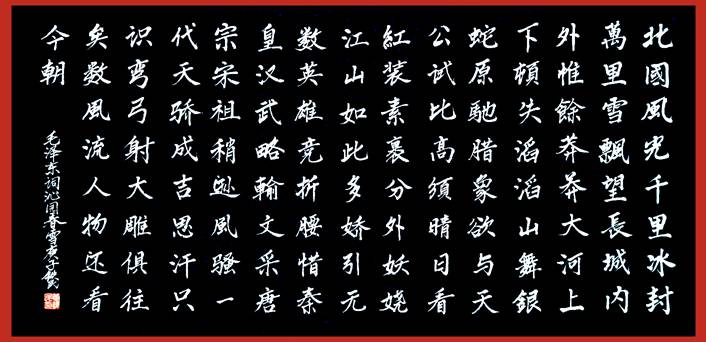 北國風光千里冰封
萬里雪飄望長城内
外惟餘莽莽大河上
下頓失滔滔山舞銀
蛇原馳腊象欲与天
公试比高須晴日看
紅装素裹分外妖娆
江山如此多娇引无
数英雄竞折腰惜秦
皇汉武略輸文采唐
宗宋祖稍逊風骚一
代天骄成吉思汗只
识弯弓射大雕俱往
矣数風流人物还看
今朝
毛泽东词沁园春雪庚子